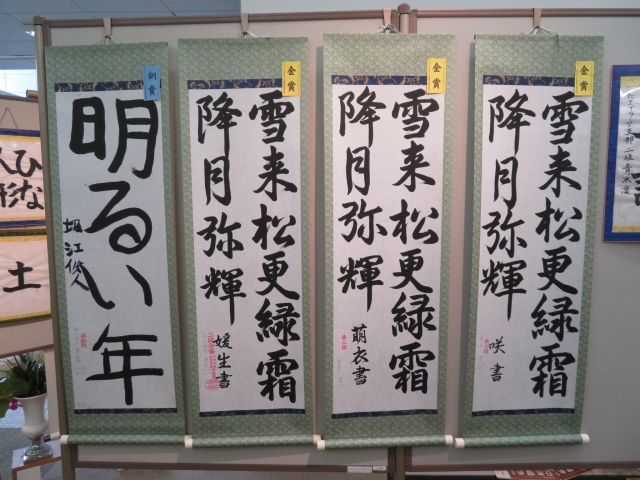 銅賞
明るい年
堀江俊人
金賞
雪来松更緑霜
降月弥輝
媛生書
金賞
雪来松更緑霜
降月弥輝
萌衣書
金賞
雪来松更緑霜
降月弥輝
咲書
ひな
人形
土